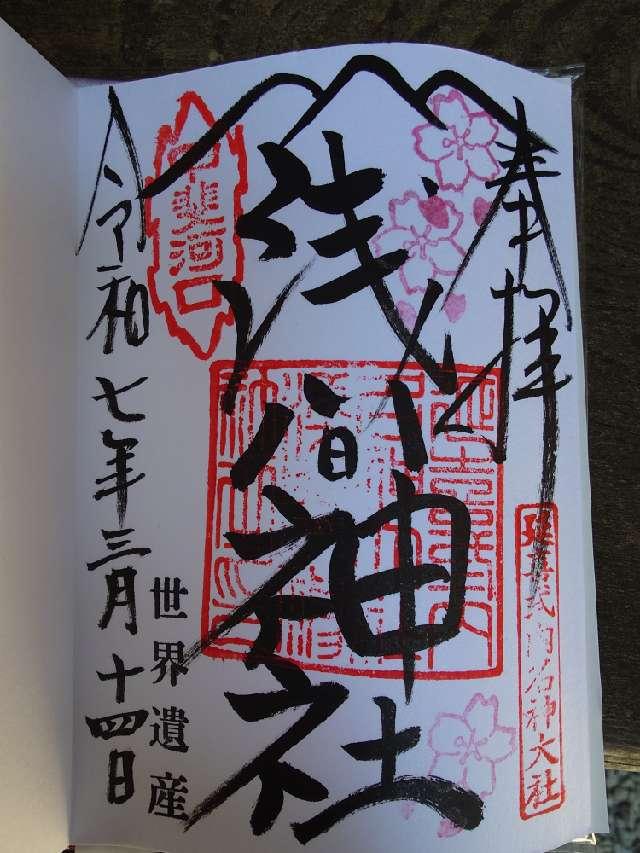 奉拝
延喜式内名神大社
浅間神社
甲斐河口
世界遺産
令和七年三月十四日